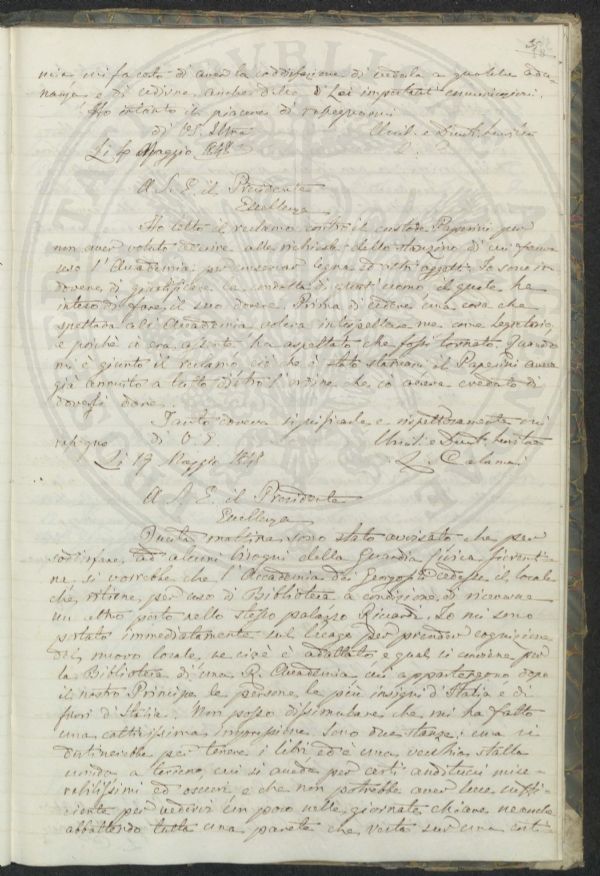 mia, mi fa certo di aver la soddisfazione di vederla a qualche adu-
nanza e di udirne anche delle di Lei importanti comunicazioni.
Ho intanto il piacere di rassegnarmi
di VS. Illma
Li 4 Maggio 1848
A S. E. il Presidente
Eccellenza
Ho letto il reclamo contro il custode Paperini per
non aver voluto aderire alle richieste dello stanzino di cui faceva
uso l'Accademia per conservar legna ed altri oggetti. Io sono in
dovere di giustificare la condotta di quest'uomo il quale ha
inteso di fare il suo dovere. Prima di cedere una cosa che
spettava all'Accademia voleva interpellare me come Segretario,
e poichè io era assente ha aspettato che fossi tornato. Quando
mi è giunto il reclamo, ciò che è stato stamani, il Paperini aveva
già annuito a tutto dietro l'ordine che io aveva creduto di
dovergli dare.
Tanto doveva significarle e rispettosamente mi
rassegno
di V. E.
Li 17 Maggio 1848
L. Calamai
A S. E. il Presidente
Eccellenza
Questa mattina sono stato avvisato che per
sodisfare ad alcuni bisogni della Guardia Civica fiorenti-
na, si vorrebbe che l'Accademia dei Georgofili cedesse il locale
che ritiene per uso di Biblioteca a condizione di riceverne
un altro posto nello stesso palazzo Riccardi. Io mi sono
portato immediatamente sul luogo per prender cognizione
del nuovo locale, se cioè è adattato e qual si conviene per
la Biblioteca di una R. Accademia cui appartengono dopo
il nostro Principe le persone le più insigni d'Italia e di
fuori d'Italia. Non posso dissimulare che mi ha fatto
una cattivissima impressione. Sono due stanze; una si
destinerebbe per tenere i libri ed è una vecchia stalla
umida a terreno, cui si accede per certi anditucci mise-
rabilissimi ed oscuri e che non potrebbe aver luce suffi-
ciente per vedervi un poco nelle giornate chiare neanche
abbattendo tutta una parete che resta sur una corti-